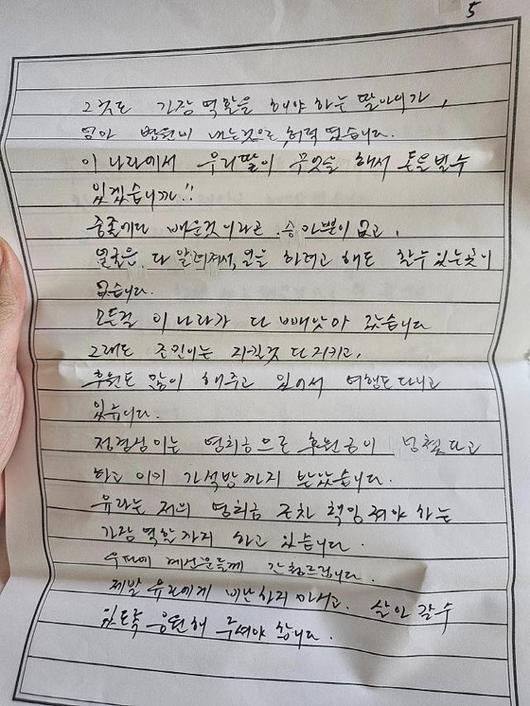 5
그것도 가장 역활을 해야 하는 딸아이가,
엄마 병원비 내는것으로, 허덕 였습니다.
이 나라에서 우리딸이 무엇을 해서 돈을 벌수
있겠습니까!!
중졸에다 배운것이라곤 승마뿐이 없고,
얼굴은 다 알려져서, 일을 하려고 해도 할수 있는곳이
없습니다.
모든걸 이 나라가 다 빼앗아 갔습니다
그래도 조민이는 지킬것 다 지키고,
후원도 많이 해주고 있어서 여행도 다니고
있습니다.
정경심이는 영치금으로 후원금이 넘쳤다고
하고 이미 가석방까지 받았습니다.
유라는 저의 영치금 조차 책임져야 하는
가장 역할까지 하고 있습니다.
우파에 계신분들께 간청드립니다.
제발 유라에게 비난하지 마시고, 살아 갈수
있도록 응원해 주셔야 합니다.